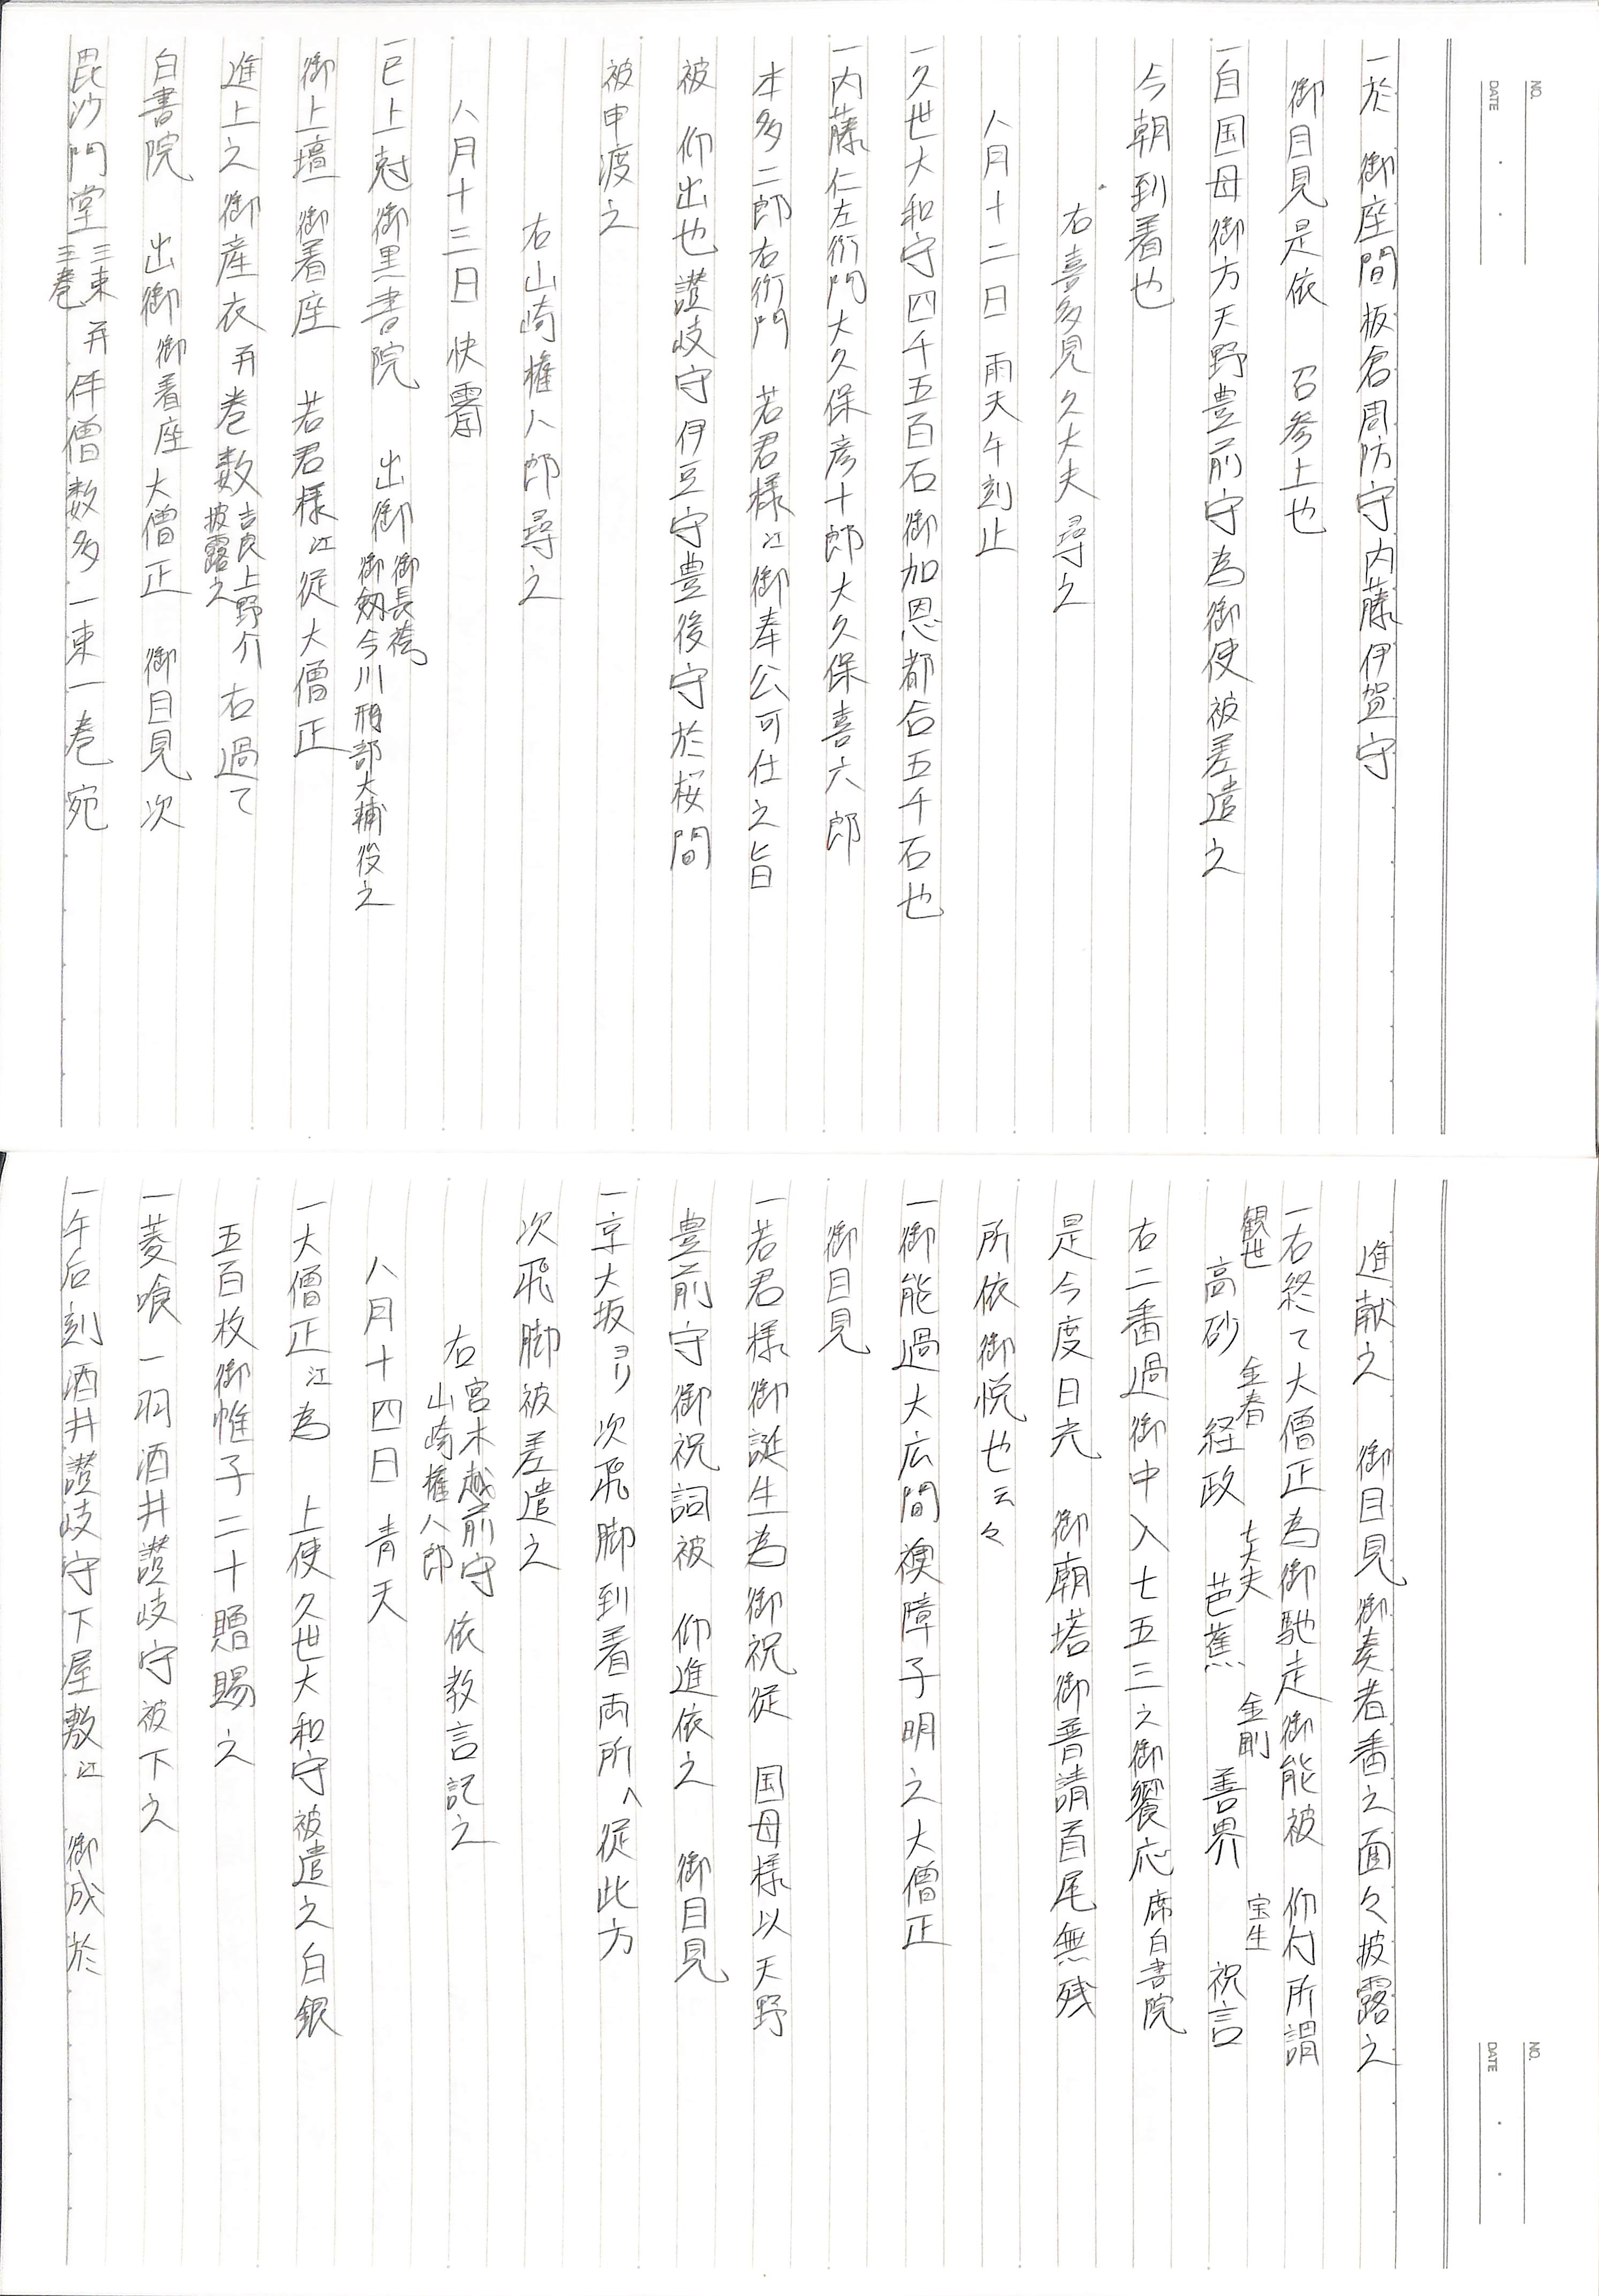 NO.
DATE
一於　御座間板倉周防守内藤伊賀守
御目見是依　召参上也
一自国母御方天野豊前守為御使被差遣之
今朝到着也
右喜多見久大夫尋之
八月十二日　雨天午刻止
一久世大和守四千五百石御加恩都合五千石也
一内藤仁左衛門大久保彦十郎大久保喜六郎
本多二郎右衛門　若君様江御奉公可仕之旨
被　仰出也讃岐守伊豆守豊後守於桜間
被申渡之
右山崎権八郎尋之
八月十三日　快霽
一巳上尅御黒書院　出御御長袴御剱今川刑部大輔役之
御上壇御着座　若君様江従大僧正
進上之御産衣并巻数吉良上野介披露之右過て
白書院　出御御着座大僧正　御目見次
毘沙門堂三束三巻并伴僧数多一束一巻宛
NO.
DATE
進献之　御目見御奏者番之面々披露之
一右終て大僧正為御馳走御能被　仰付所謂
観世高砂　金春経政　七大夫芭蕉　金剛善界　宝生祝言
右二番過御中入七五三之御饗応席白書院
是今度日光　御廟塔御普請首尾無残
所依御悦也云々
一御能過大広間襖障子明之大僧正
御目見
一若君様御誕生為御祝従　国母様以天野
豊前守御祝詞被　仰進依之　御目見
一京大坂ヨリ次飛脚到着両所へ従此方
次飛脚被差遣之
右宮木越前守山崎権八郎依教言記之
八月十四日　青天
一大僧正江為　上使久世大和守被遣之白銀
五百枚御帷子二十贈賜之
一菱喰一羽酒井讃岐守被下之
一午后刻酒井讃岐守下屋敷江　御成於